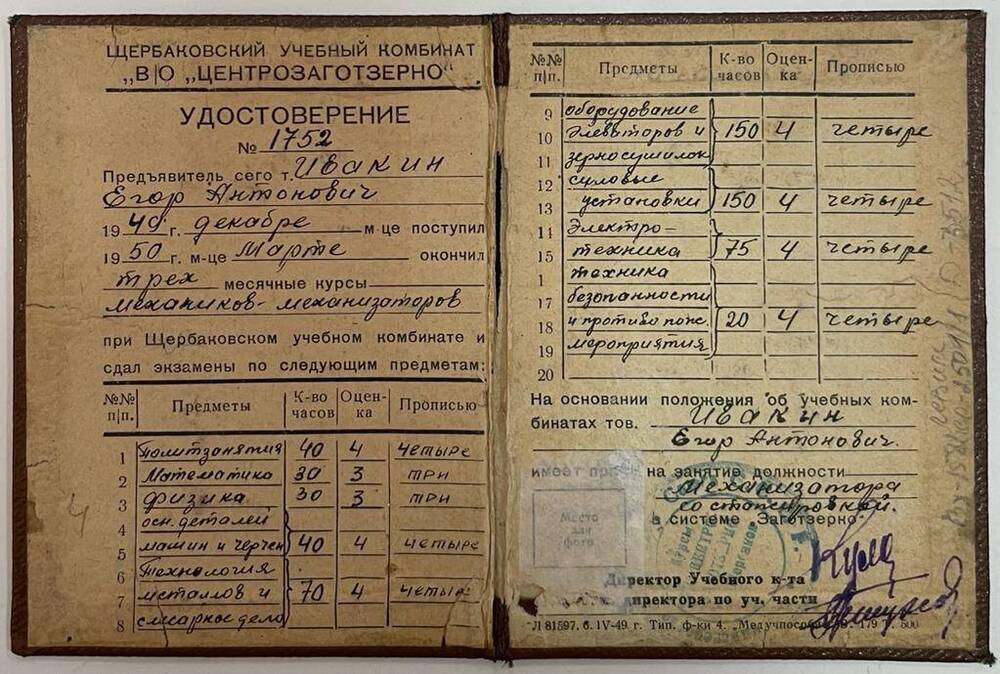 ЩЕРБАКОВСКИЙ УЧЕБНЫЙ КОМБИНАТ
„В/О „ЦЕНТРОЗАГОТЗЕРНО“
УДОСТОВЕРЕНИЕ
№ 1752
Предъявитель сего т. Ивакин
Егор Антонович
1949 г. декабре м-це поступил
1950 г. м-це Марте окончил
трех месячные курсы
механиков-механизаторов
при Щербаковском учебном комбинате и
сдал экзамены по следующим предметам:
№№ п/п. Предметы К-во часов Оценка Прописью
1 Политзанятия 40 4 четыре
2 Математика 30 3 три
3 физика 30 3 три
4 осн. деталей
5 машин и черчен 40 4 четыре
6 Технология
7 металлов и 70 4 четыре
8 слесарное дело
4
№№ п/п. Предметы К-во часов Оцен-ка Прописью
9 оборудование
10 элеваторов и 150 4 четыре
11 зерносушилок
12 силовые
13 установки 150 4 четыре
11 Электро-
15 техника 75 4 четыре
1 техника
17 безопасности
18 и противопож. 20 4 четыре
19 мероприятия
20
На основании положения об учебных ком-
бинатах тов. Ивакин
Егор Антонович.
имеет право на занятие должности
механизатора
со стажировкой.
в системе Заготзерно
Место
для
фото
Директор Учебного к-та
директора по уч. части
Л 81597. 6. IV-49 г. Тип. ф-ки 4. „Медучпособие“ 179 т. 500